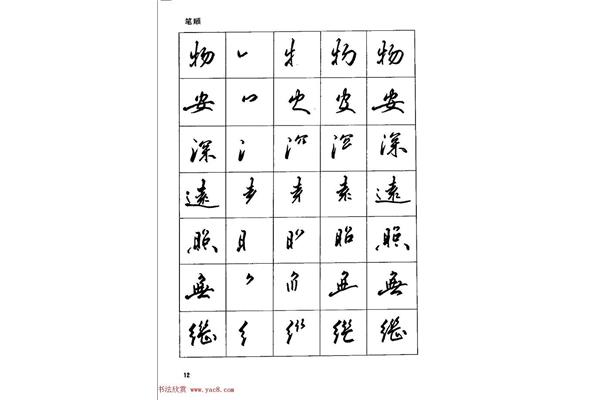 笔顺
物 物
安 安
深 深
遠 遠
照 照
無 無
繼 繼
12
书法欣赏 www.yac8.com